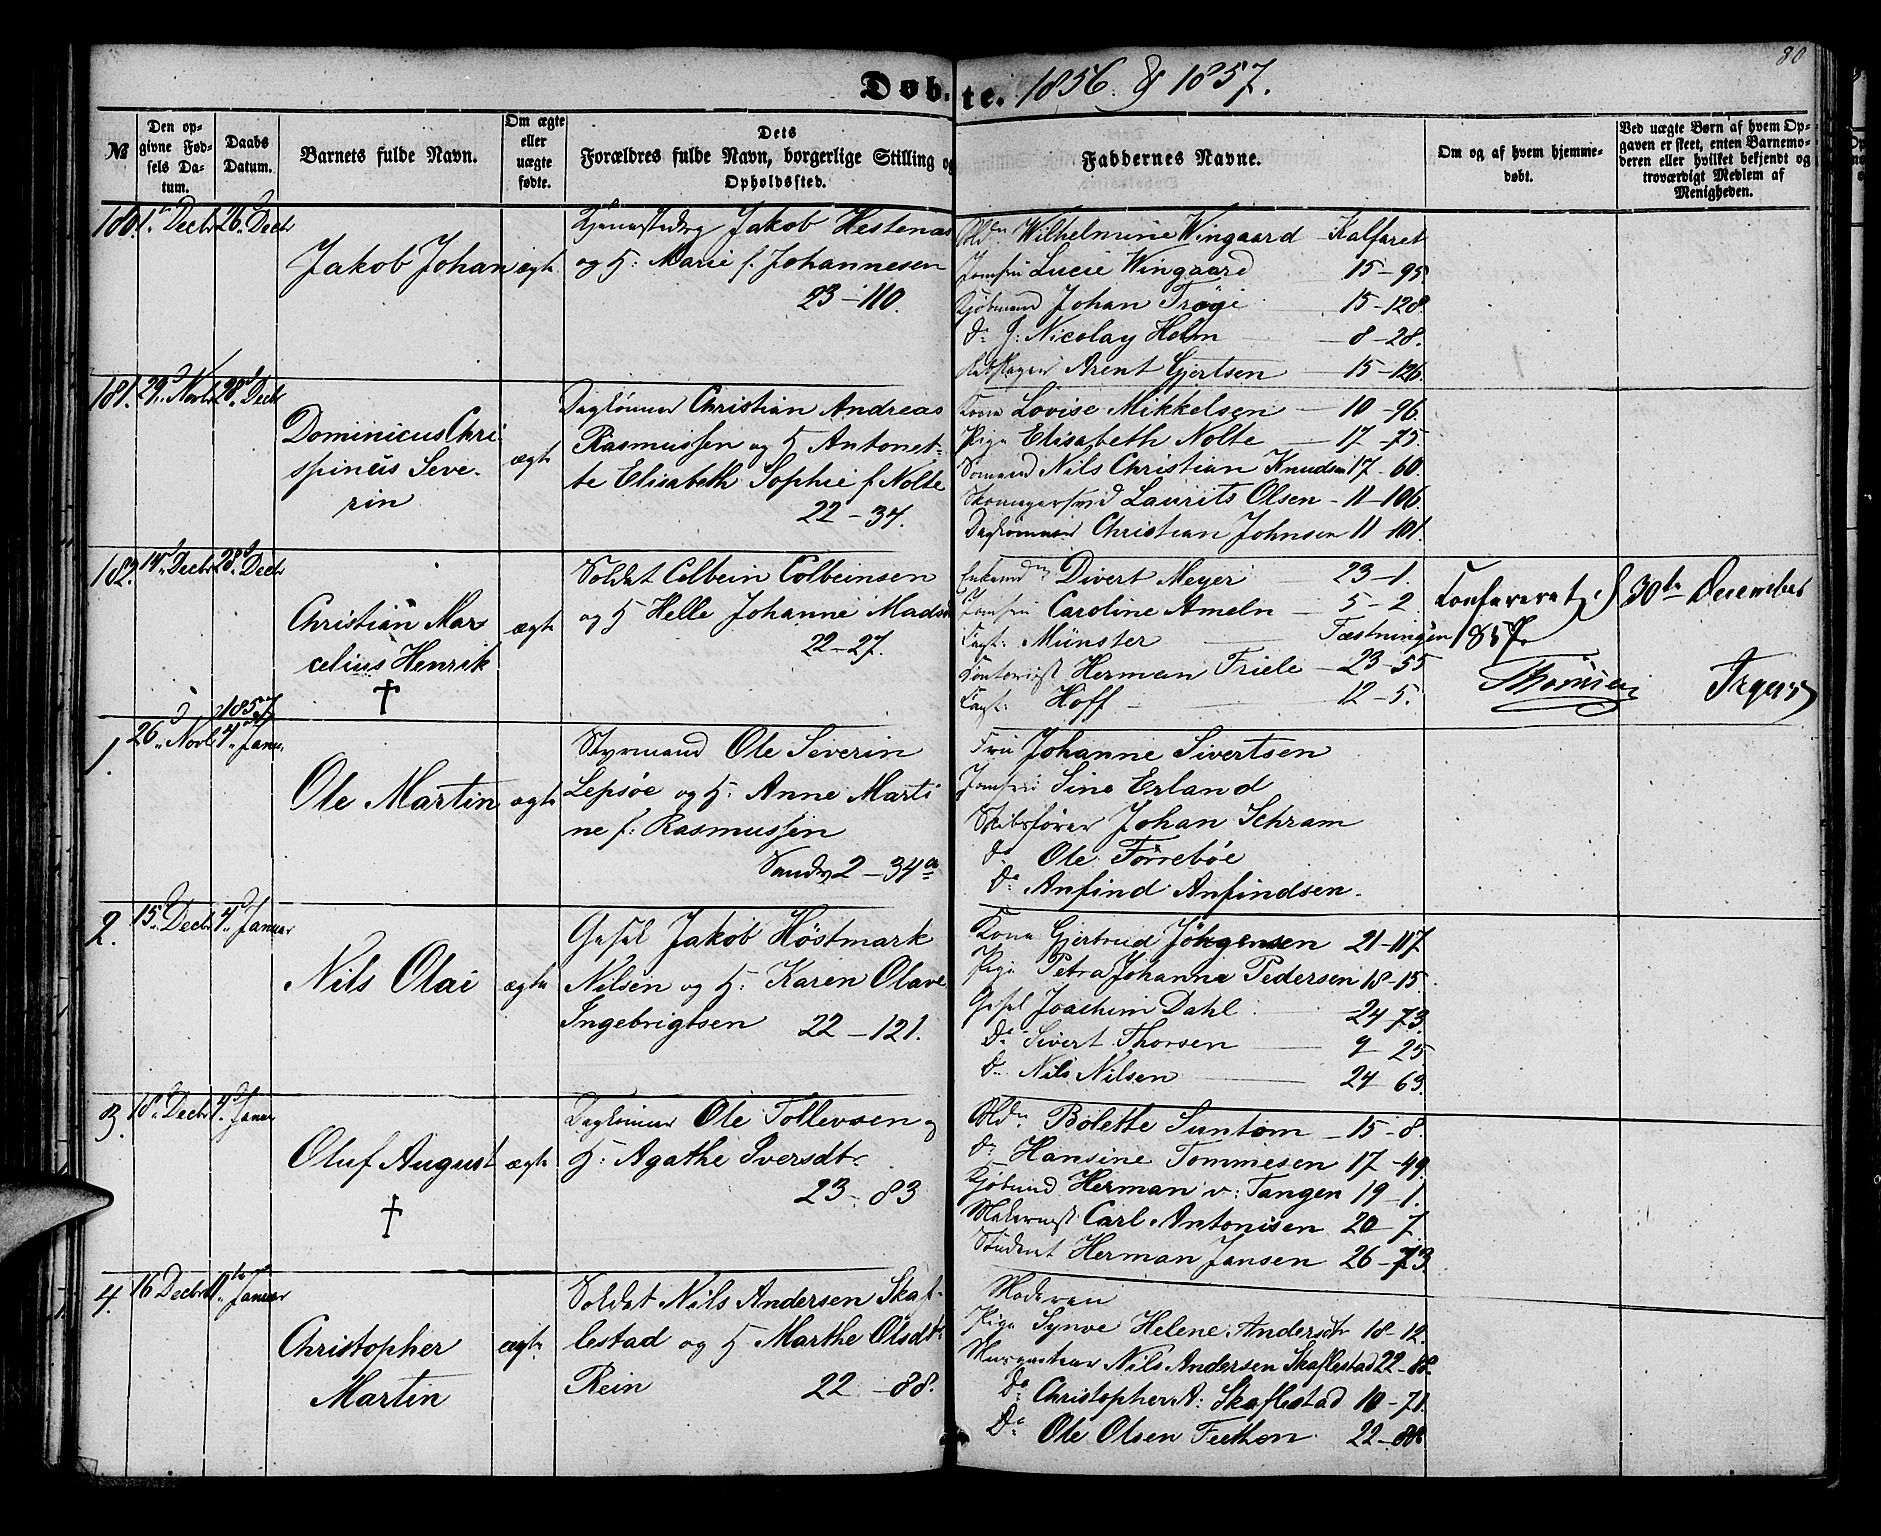 80
Døbte. 1856 & 1857.
№
Den opgivne Fødsels Datum.
Daabs Datum.
Barnets fulde Navn.
Om ægte eller uægte fødte.
Dets Forældres fulde Navn, borgerlige Stilling og Opholdssted.
Faddernes Navne.
Om og af hvem hjemmedøbt.
Ved uægte Børn af hvem Opgaven er skeet, enten Barnemoderen eller hvilket bekjendt og troværdigt Medlem af Menigheden.
180. 1te Decbr 26d Decb
Jakob Johan
ægte
Jakob Hestenæs
og H: Marie f. Johannesen
23-110.
Md. Wilhelmine Wingaard Kalfaret
Jomfru Lucie Wingaard 15-95.
Kjøbmand Johan Trøge 15-128.
Do J: Nicolay Holm 8-28.
Arent Gjertsen 15-126.
181. 29d Novbr 28d Decb
Dominicus Chri
spinus Seve-
rin
ægte
Daglønner Christian Andreas
Rasmussen og H Antonet-
te Elisabeth Sophie f Nolte
22-37.
Kone Lovise Mikkelsen 10-96
Pige Elisabeth Nolte 17-75
Sømand Nils Christian Knudsen 17-60.
Skomagersvend Laurits Olsen 11-106.
Daglønner Christian Johnsen 11-101.
182. 14d Decbr 28d Decbr
Christian Mar
celius Henrik
†
ægte
Soldat Colbein Colbeinsen
og H Helle Johanne Mads
22-27.
Divert Meyer 23-1.
Jomfru Caroline Ameln 5-2.
Münster Fæstningen
Kontorist Herman Friele 23-55
Hoff 12-5.
Konfereret d 30te December
1857
Irgens
1857
1. 26d Novb 4d Janu.
Ole Martin
ægte
Styrmand Ole Severin
Lepsøe og H: Anne Marti
ne f: Rasmussen
Sandv 2-34a
Fru Johanne Sivertsen
Jomfru Sine Erland
Skibsfører Johan Schram
Do Ole Torrebøe
Do Anfind Anfindsen.
2. 15d Decbr 4d Januar
Nils Olai
ægte
Gesel Jakob Höstmark
Nilsen og H: Karen Olave
Ingebrigtsen 22-121.
Kone Gjertrud Jörgensen 21-117
Pige Petra Johanna Pedersen 18-15.
Gesel Joachim Dahl 24-73.
Do Sivert Thorsen 9-25
Do Nils Nilsen 24-63.
3. 18d Decbr 4d Janu
Oluf August
†
ægte
Daglønner Ole Tollevsen og
H: Agathe Iversdtr.
23-83
Md. Bolette Suntom 15-8.
Do Hansine Tommesen 17-49.
Kjøbmd Herman v: Tangen 19-1.
Carl Antonisen 20-7.
Student Herman Jansen 26-73.
4. 16 Decbr 11te Januar
Christopher
Martin
ægte
Soldat Nils Andersen Skaf-
lestad og H Marthe Olsdtr
Rein 22-88.
Moderen
Pige Synve Helene Andersdtr 18-12.
Nils Andersen Skaflestad 22-88.
Do Christopher A: Skaflestad 10-71.
Do Ole Olsen Feethen 22-88